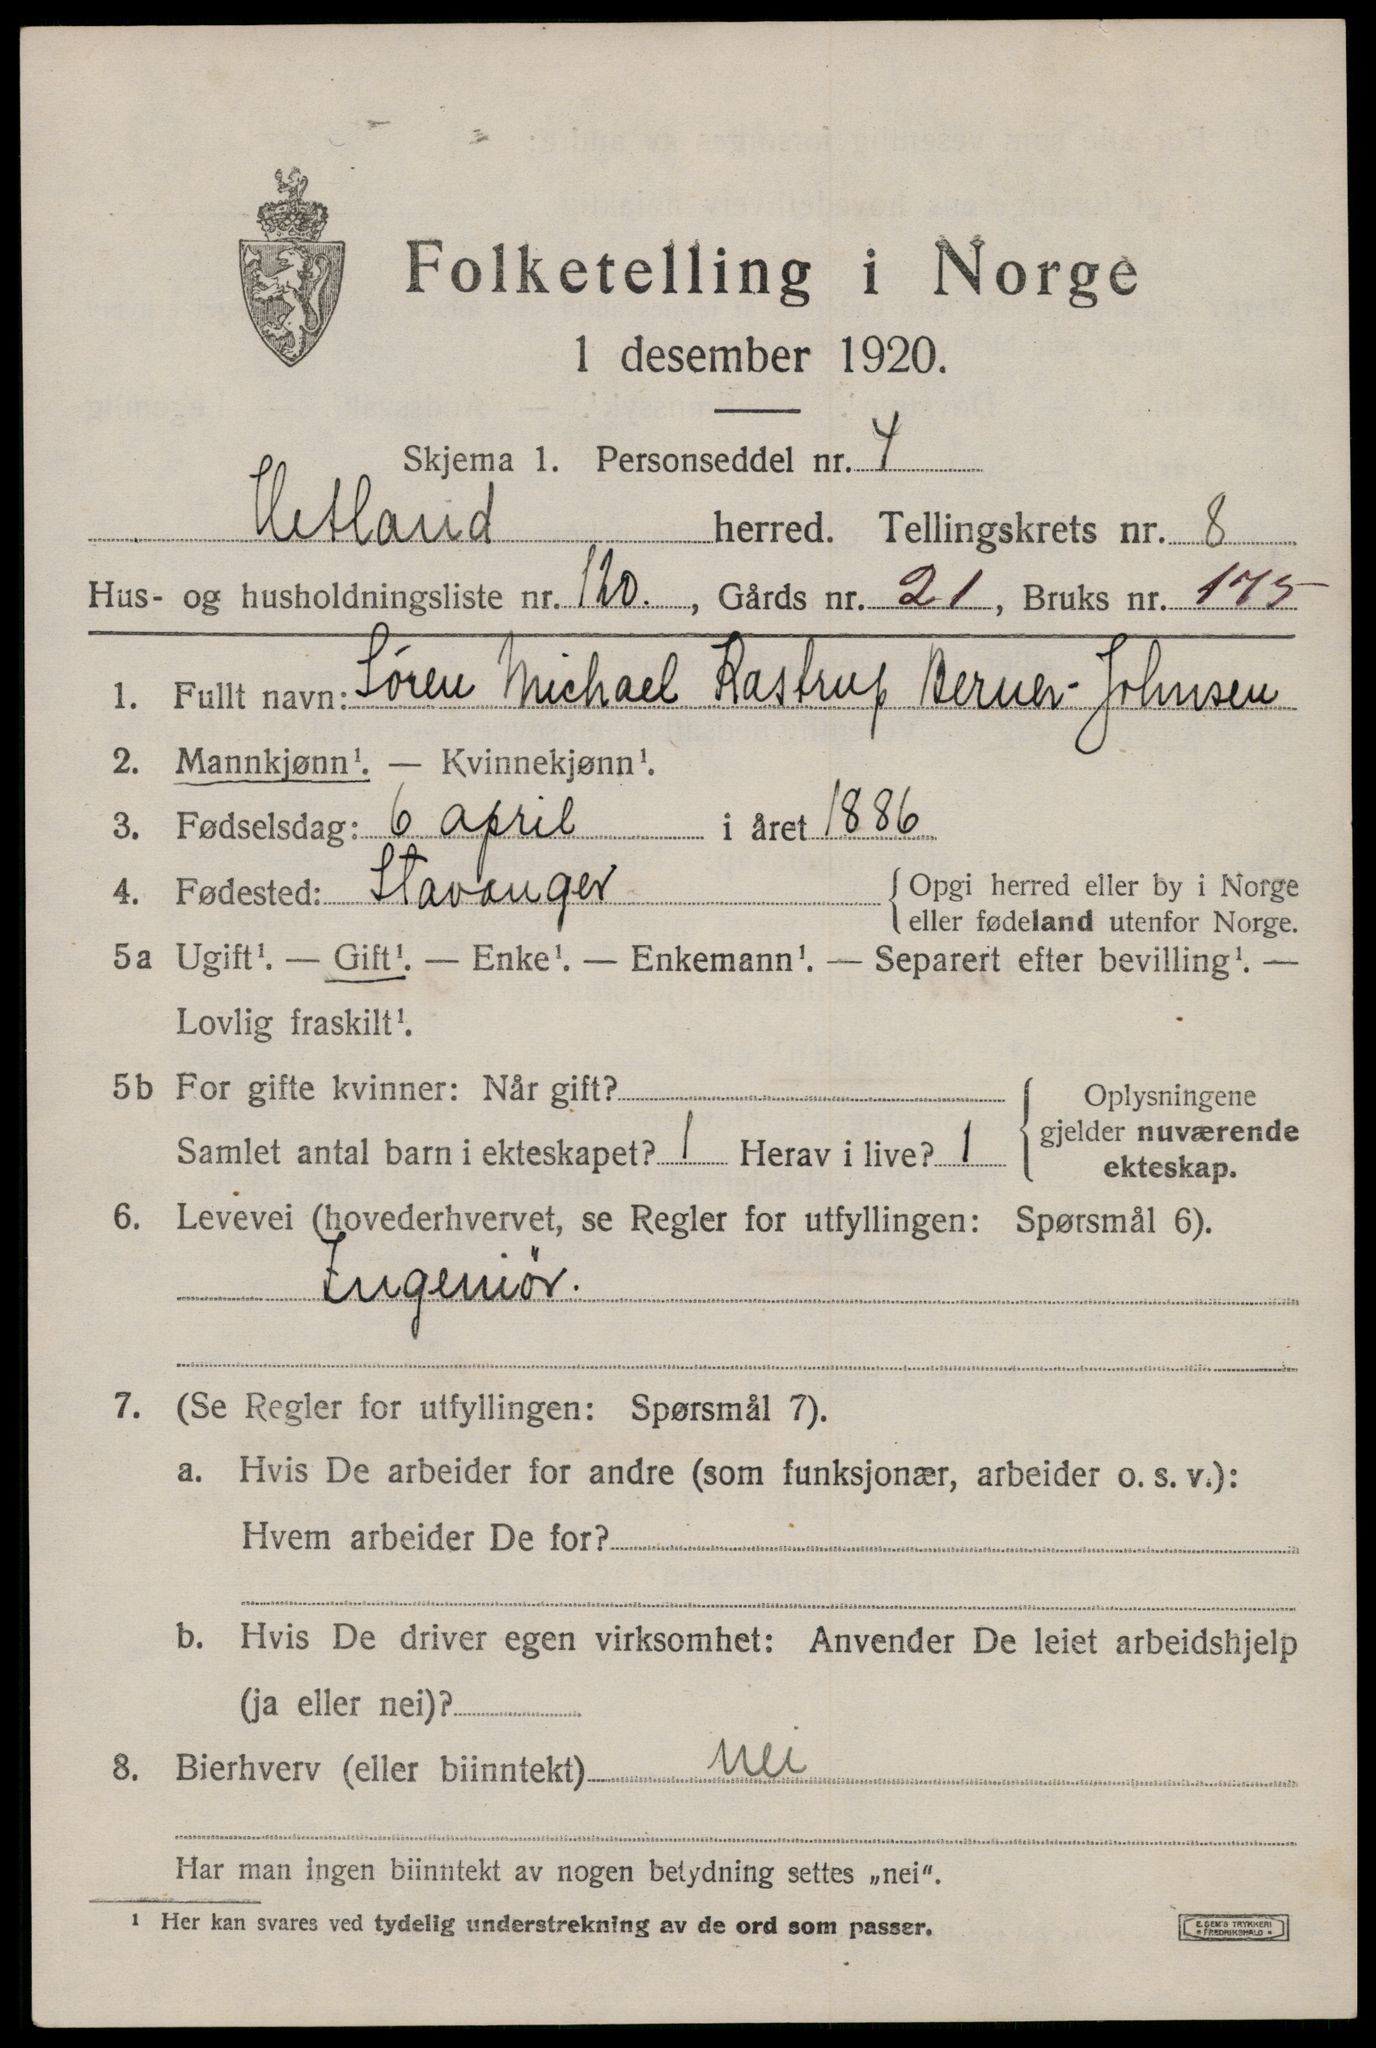 Folketelling i Norge
1 desember 1920.
Skjema 1. Personseddel nr. 4
Hetland herred. Tellingskrets nr. 8
Hus- og husholdningsliste nr. 120., Gårds nr. 21, Bruks nr. 175
1. Fullt navn: Søren Michael Kastrup Berner-Johnsen
2. Mannkjønn¹. — Kvinnekjønn¹.
3. Fødselsdag: 6 april i året 1886
4. Fødested: Stavanger {Opgi herred eller by i Norge
eller fødeland utenfor Norge.
5a Ugift¹. — Gift¹. — Enke¹. — Enkemann¹. — Separert efter bevilling¹. —
Lovlig fraskilt¹.
5b For gifte kvinner: Når gift?
Samlet antal barn i ekteskapet? 1 Herav i live? 1
Oplysningene
gjelder nuværende
ekteskap.
6. Levevei (hovederhvervet, se Regler for utfyllingen: Spørsmål 6).
Ingeniör.
7. (Se Regler for utfyllingen: Spørsmål 7).
a. Hvis De arbeider for andre (som funksjonær, arbeider o. s. v.):
Hvem arbeider De for?
b. Hvis De driver egen virksomhet: Anvender De leiet arbeidshjelp
(ja eller nei)?
8. Bierhverv (eller biinntekt) nei
Har man ingen biinntekt av nogen betydning settes „nei“.
¹ Her kan svares ved tydelig understrekning av de ord som passer.
E. SEM'S TRYKKERI
* FREDRIKSHALD *